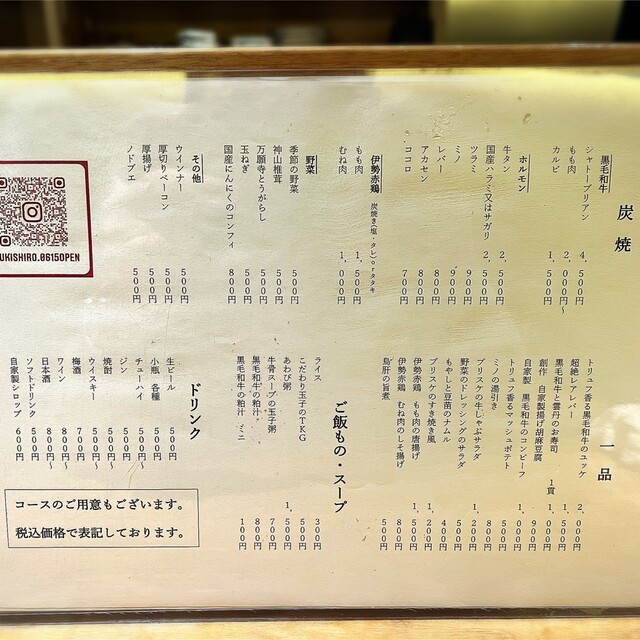 炭焼
黒毛和牛
シャトーブリアン 4,500円
もも肉 2,000円〜
カルビ 1,500円
ホルモン
牛タン 2,500円
国産ハラミ又はサガリ 2,500円
ツラミ 900円
ミノ 900円
レバー 800円
アカセン 800円
ココロ 700円
伊勢赤鶏 炭焼き(塩・タレ)orタタキ
もも肉 1,500円
むね肉 1,000円
野菜
季節の野菜 500円
神山椎茸 500円
万願寺とうがらし 500円
玉ねぎ 500円
国産にんにくのコンフィ 800円
その他
ウインナー 500円
厚切りベーコン 500円
厚揚げ 500円
ノドブエ 500円
UKISHIRO.0615OPEN
一品
トリュフ香る黒毛和牛のユッケ 2,000円
超絶レアレバー 1,500円
黒毛和牛と雲丹のお寿司 1貫 1,000円
創作 自家製揚げ胡麻豆腐 900円
自家製 黒毛和牛のコンビーフ 1,000円
トリュフ香るマッシュポテト 500円
ミノの湯引き 800円
ブリスケの牛しゃぶサラダ 1,200円
野菜のドレッシングのサラダ 800円
もやしと豆苗のナムル 400円
ブリスケのすき焼き風 1,200円
伊勢赤鶏 もも肉の唐揚げ 1,500円
伊勢赤鶏 むね肉のしそ揚げ 1,000円
鳥肝の旨煮 500円
ご飯もの・スープ
ライス 300円
こだわり玉子のTKG 500円
あわび粥 1,500円
牛骨スープの玉子粥 700円
黒毛和牛の粕汁 800円
黒毛和牛の粕汁 ミニ 100円
ドリンク
生ビール 500円
小瓶 各種 500円
チューハイ 500円
ジン 500円
焼酎 500円〜
ウイスキー 500円〜
梅酒 700円
ワイン 800円〜
日本酒 800円〜
ソフトドリンク 500円
自家製シロップ 600円
コースのご用意もございます。
税込価格で表記しております。